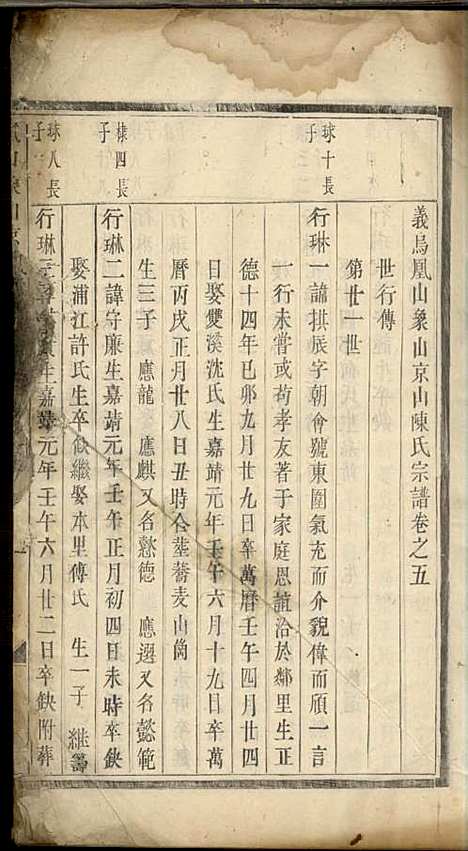 義烏鳳山象山京山陳氏宗譜卷之五
世行傳
第廿一世
球十長子
行琳一諱祺族字朝會號東圃氣充而介貌偉而頎一言
一行未嘗或苟孝友著于家庭恩誼洽於鄰里生正
德十四年己卯九月廿九日卒萬曆壬午四月廿四
日娶雙溪沈氏生嘉靖元年壬午六月十九日卒萬
曆丙戌正月廿八日丑時合葬蕎麦山崗
生三子 應龍 應麒又名懋德 應選又名懿範
棣四長子
行琳二諱守廉生嘉靖元年壬午正月初四日未時卒缺
娶浦江許氏生卒缺繼娶本里傅氏 生一子 繼
球八長子
行琳三諱 年嘉靖元年壬午六月廿二日卒缺附葬